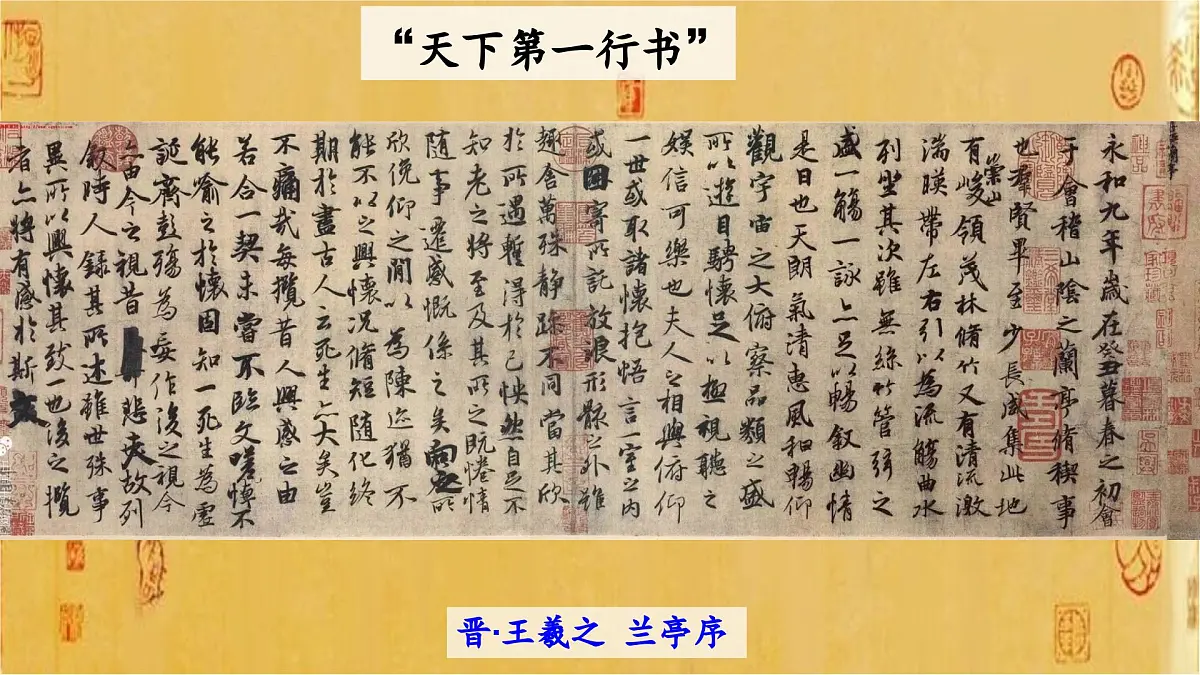 “天下第一行书”
永和九年歲在癸丑暮春之初會
于會稽山陰之蘭亭脩稧事
也羣賢畢至少長咸集此地
有崇山峻領茂林脩竹又有清流激
湍暎帶左右引以為流觴曲水
列坐其次雖無絲竹管弦之
盛一觴一詠亦足以暢敘幽情
是日也天朗氣清惠風和暢仰
觀宇宙之大俯察品類之盛
所以遊目騁懷足以極視聽之
娛信可樂也夫人之相與俯仰
一世或取諸懷抱悟言一室之內
或因寄所託放浪形骸之外雖
趣舍萬殊静躁不同當其欣
於所遇暫得於己怏然自足不
知老之將至及其所之既惓情
隨事遷感慨係之矣向之所
欣俛仰之閒以為陳迹猶不
能不以之興懷況脩短隨化終
期於盡古人云死生亦大矣豈
不痛哉每攬昔人興感之由
若合一契未嘗不臨文嗟悼不
能喻之於懷固知一死生為虛
誕齊彭殤為妄作後之視今
亦由今之視昔悲夫故列
敘時人錄其所述雖世殊事
異所以興懷其致一也後之攬
者亦將有感於斯文
晋·王羲之 兰亭序